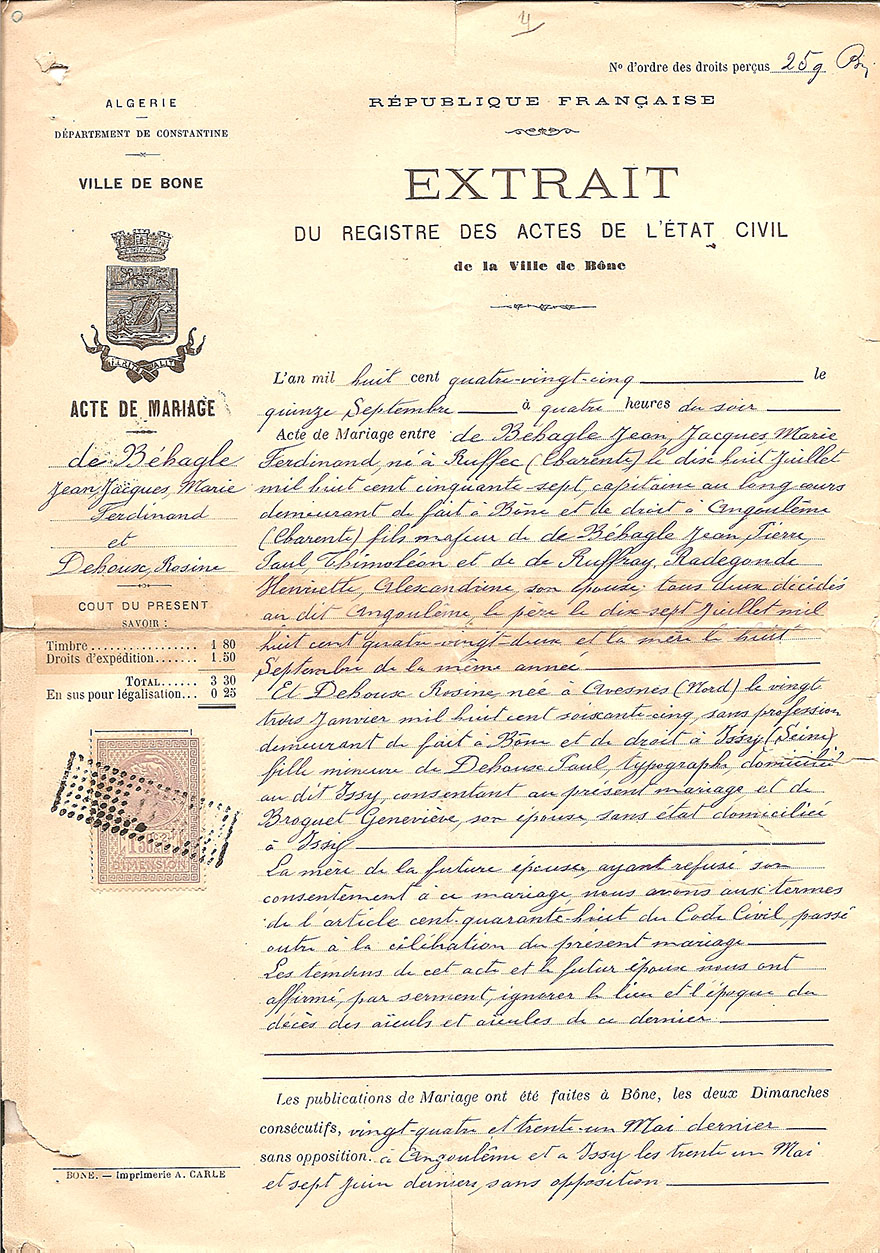 4
N° d'ordre des droits perçus 259
ALGERIE
DÉPARTEMENT DE CONSTANTINE
VILLE DE BONE
ACTE DE MARIAGE
de Béhagle
Jean, Jacques, Marie
Ferdinand
et
Dehouse, Rosine
COUT DU PRESENT
SAVOIR :
Timbre.................. 1 80
Droits d'expédition....... 1.50
TOTAL...... 3 30
En sus pour légalisation... 0 25
DIMENSION
BONE. — Imprimerie A. CARLE
RÉPUBLIQUE FRANÇAISE
EXTRAIT
DU REGISTRE DES ACTES DE L'ÉTAT CIVIL
de la Ville de Bône
L'an mil huit cent quatre-vingt-cinq le
quinze Septembre à quatre heures du soir
Acte de Mariage entre de Béhagle Jean, Jacques Marie
Ferdinand, né à Ruffec (Charente) le dix huit Juillet
mil huit cent cinquante-sept, capitaine au long cours
demeurant de fait à Bône et de droit à Angoulême
(Charente) fils majeur de de Béhagle Jean, Pierre,
Paul, Thimoléon et de de Ruffray, Radegonde
Henriette, Alexandrine, son épouse; tous deux décédés
au dit Angoulême, le père le dix-sept Juillet mil
huit cent quatre-vingt-deux et la mère le huit
Septembre de la même année
Et Dehouse Rosine, née à Avesnes (Nord) le vingt
trois Janvier mil huit cent soixante-cinq, sans profession
demeurant de fait à Bône et de droit à Issy (Seine)
fille mineure de Dehouse Paul, typographe, domicilié
au dit Issy, consentant au présent mariage et de
Broguet Geneviève, son épouse, sans état domiciliée
à Issy
La mère de la future épouse, ayant refusé son
consentement à ce mariage, nous avons aux termes
de l'article cent-quarante-huit du Code Civil, passé
outre à la célébration du présent mariage
Les témoins de cet acte et le futur époux nous ont
affirmé, par serment, ignorer le lieu et l'époque du
décès des aïeuls et aïeules de ce dernier
Les publications de Mariage ont été faites à Bône, les deux Dimanches
consécutifs, vingt-quatre et trente-un Mai dernier
sans opposition. à Angoulême et à Issy les trente un Mai
et sept Juin derniers, sans opposition